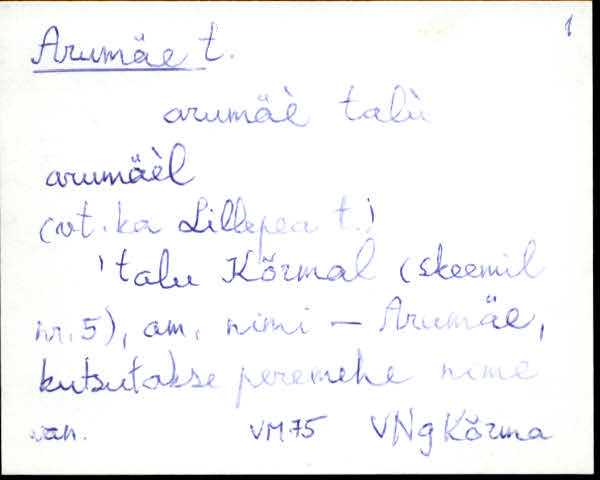 1
Arumäe t.
arumäè talù
arumäèl
(vt. ka Lillepea t.)
'talu Kõrmal (skeemil
nr. 5), am. nimi – Arumäe,
kutsutakse peremehe nime
van. VM75 VNg Kõrma